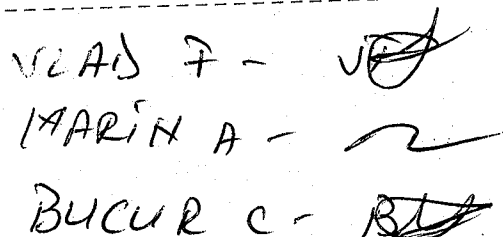 VLAD F -
MARIN A -
BUCUR C -